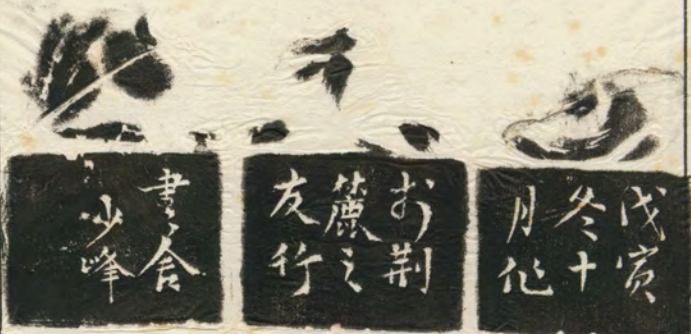 戊寅
冬十
月作
於荆
麓之
友竹
書舍
少峰